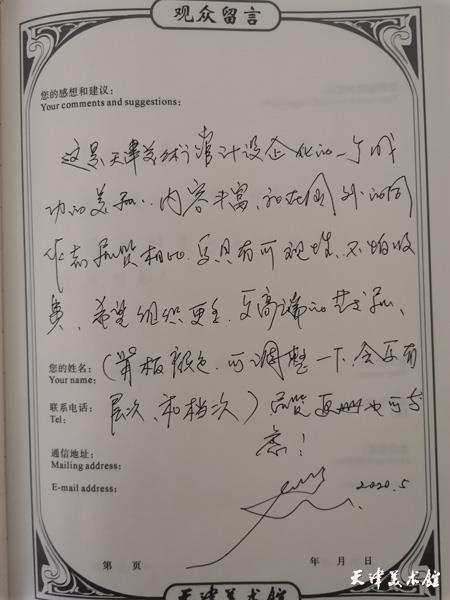 观众留言
您的感想和建议:
Your comments and suggestions:
这是天津美术馆计设企化的一个成
功的美展.内容丰富,和在国外的同
类 展览相比.更具有可观性.不怕收
费,希望组织更多.更高端的艺术展、
您的姓名:
Your name:
(背板颜色.可调整一下.会更有
联系电话:
Tel:
层次、和档次)展览 也可考
虑!
通信地址:
Mailing address:
E-mail address:
2020.5
第 页
年 月 日
天津美术馆
天津美术馆